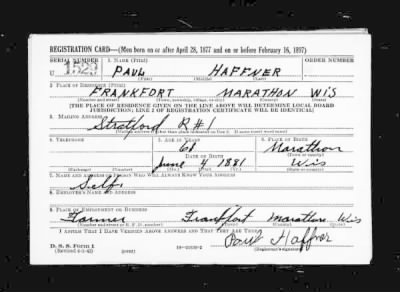 REGISTRATION CARD—(Men born on or after April 28, 1877 and on or before February 16, 1897)
SERIAL NUMBER 1. NAME (Print) ORDER NUMBER
U 1523 PAUL HAFFNER
(First) (Middle) (Last)
2. PLACE OF RESIDENCE (Print)
FRANKFORT MARATHON WIS
(Number and street) (Town, township, village, or city) (County) (State)
[THE PLACE OF RESIDENCE GIVEN ON THE LINE ABOVE WILL DETERMINE LOCAL BOARD
JURISDICTION; LINE 2 OF REGISTRATION CERTIFICATE WILL BE IDENTICAL]
3. MAILING ADDRESS
Stratford R#1
4. TELEPHONE 5. AGE IN YEARS 6. PLACE OF BIRTH
61 Marathon
DATE OF BIRTH (Town or county)
June 4 1881 Wis
(Exchange) (Number) (Mo.) (Day) (Yr.) (State or country)
7. NAME AND ADDRESS OF PERSON WHO WILL ALWAYS KNOW YOUR ADDRESS
Self
8. EMPLOYER'S NAME AND ADDRESS
9. PLACE OF EMPLOYMENT OR BUSINESS
Farmer Frankfort Marathon Wis
(Number and street or R. F. D. number) (Town) (County) (State)
I AFFIRM THAT I HAVE VERIFIED ABOVE ANSWERS AND THAT THEY ARE TRUE.
Paul Haffner
D. S. S. Form 1
(Revised 4-1-42) (over) (Registrant's signature)